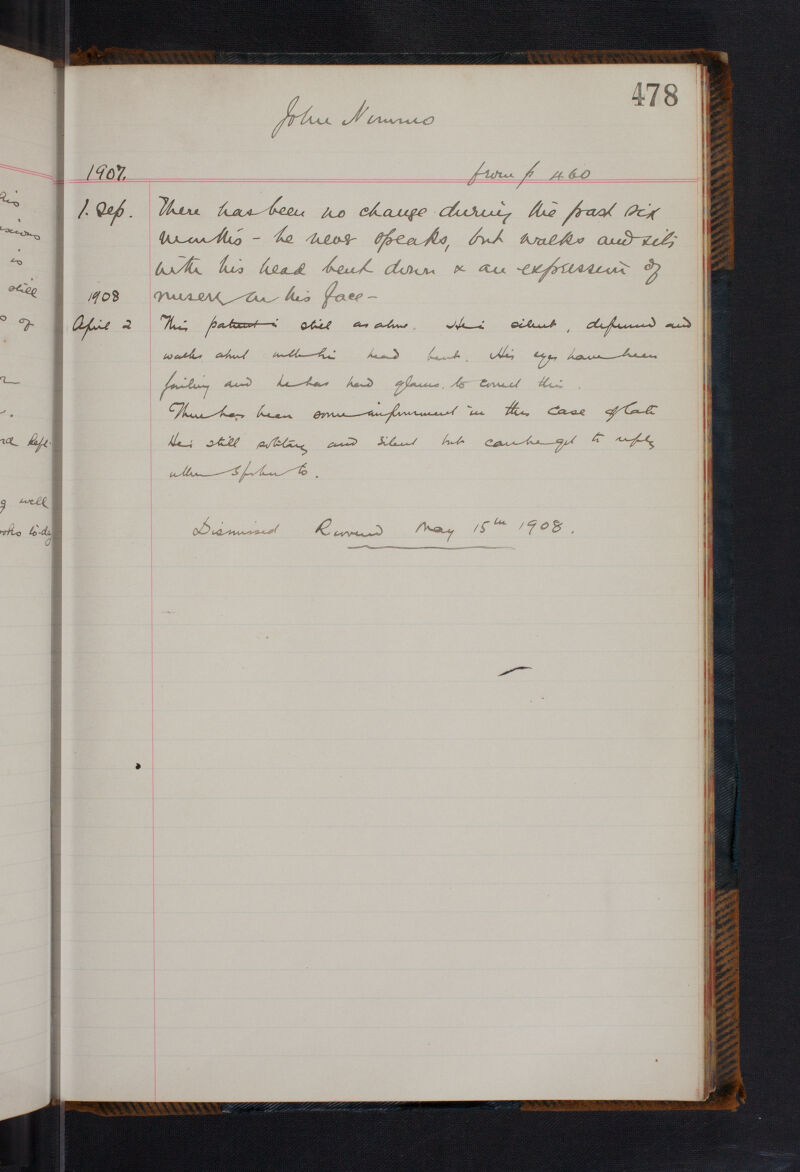 478
John Nimmo
1907. from p 460
1. Sep. There has been no change during the past six
months - he never speaks, but walks and sits
with his head bent down & an expression of
1908 misery on his face -
April 2 This patient is still as above. He is silent, depressed and
walks about with his head bent. His eyes have been
failing and he has had glasses to correct this.
There has been some improvement in this case of late
He is still solitary and silent but can be got to reply
when spoken to.
Dismissed May 15th 1908.
his
is
still
of
well